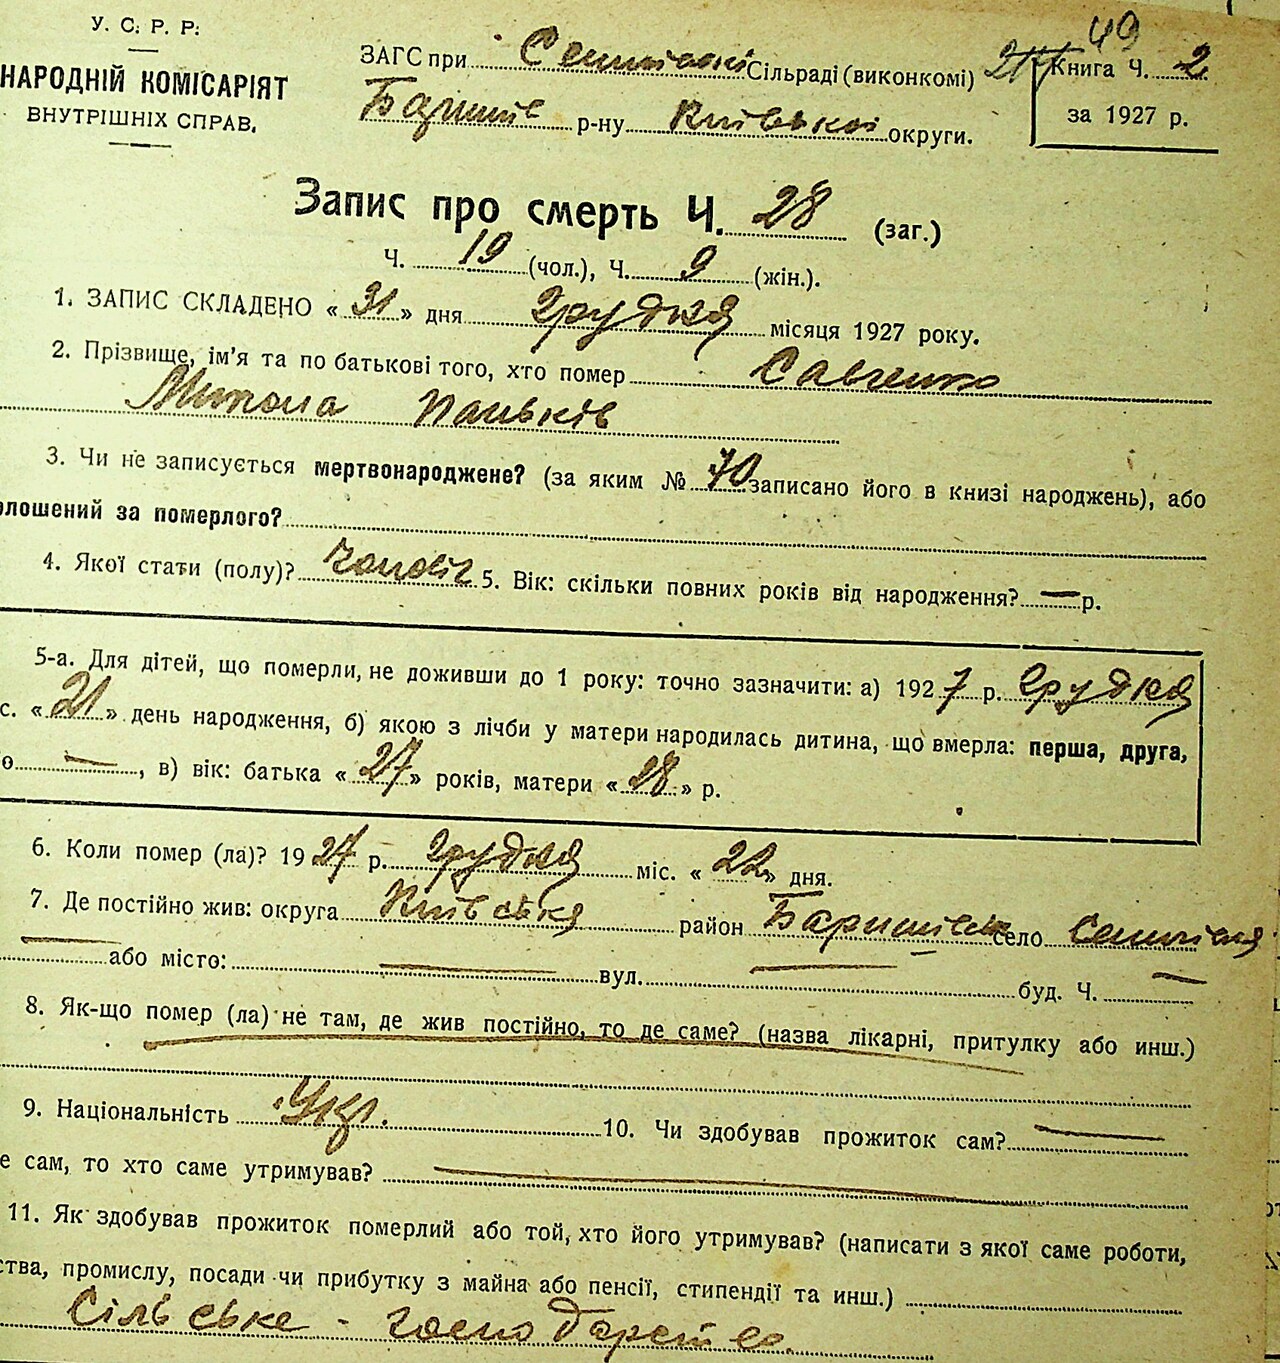 У. С. Р. Р.
НАРОДНІЙ КОМІСАРІЯТ
ВНУТРІШНІХ СПРАВ.
49
ЗАГС при Сенківскі Сільраді (виконкомі)
Книга Ч. 2
за 1927 р.
Баришів р-ну Київської округи.
Запис про смерть Ч. 28 (заг.)
Ч. 19 (чол.), Ч. 9 (жін.).
1. ЗАПИС СКЛАДЕНО « 31 » дня грудня місяця 1927 року.
2. Прізвище, ім'я та по батькові того, хто помер Савченко
Микола Паньків
3. Чи не записується мертвонароджене? (за яким № 70 записано його в книзі народжень), або
олошений за померлого?
4. Якої стати (полу)? чоловіч 5. Вік: скільки повних років від народження? — р.
5-а. Для дітей, що померли, не доживши до 1 року: точно зазначити: а) 1927 р. грудня
с. « 21 » день народження, б) якою з лічби у матери народилась дитина, що вмерла: перша, друга,
о — , в) вік: батька « 27 » років, матери « 28 » р.
6. Коли помер (ла)? 1927 р. грудня міс. « 22 » дня.
7. Де постійно жив: округа Київська район Баришівськ село
— або місто: — вул. — буд. Ч. —
8. Як-що помер (ла) не там, де жив постійно, то де саме? (назва лікарні, притулку або инш.)
9. Національність Укр. 10. Чи здобував прожиток сам? —
е сам, то хто саме утримував? —
11. Як здобував прожиток померлий або той, хто його утримував? (написати з якої саме роботи,
ства, промислу, посади чи прибутку з майна або пенсії, стипендії та инш.)
Сільське - господарство.